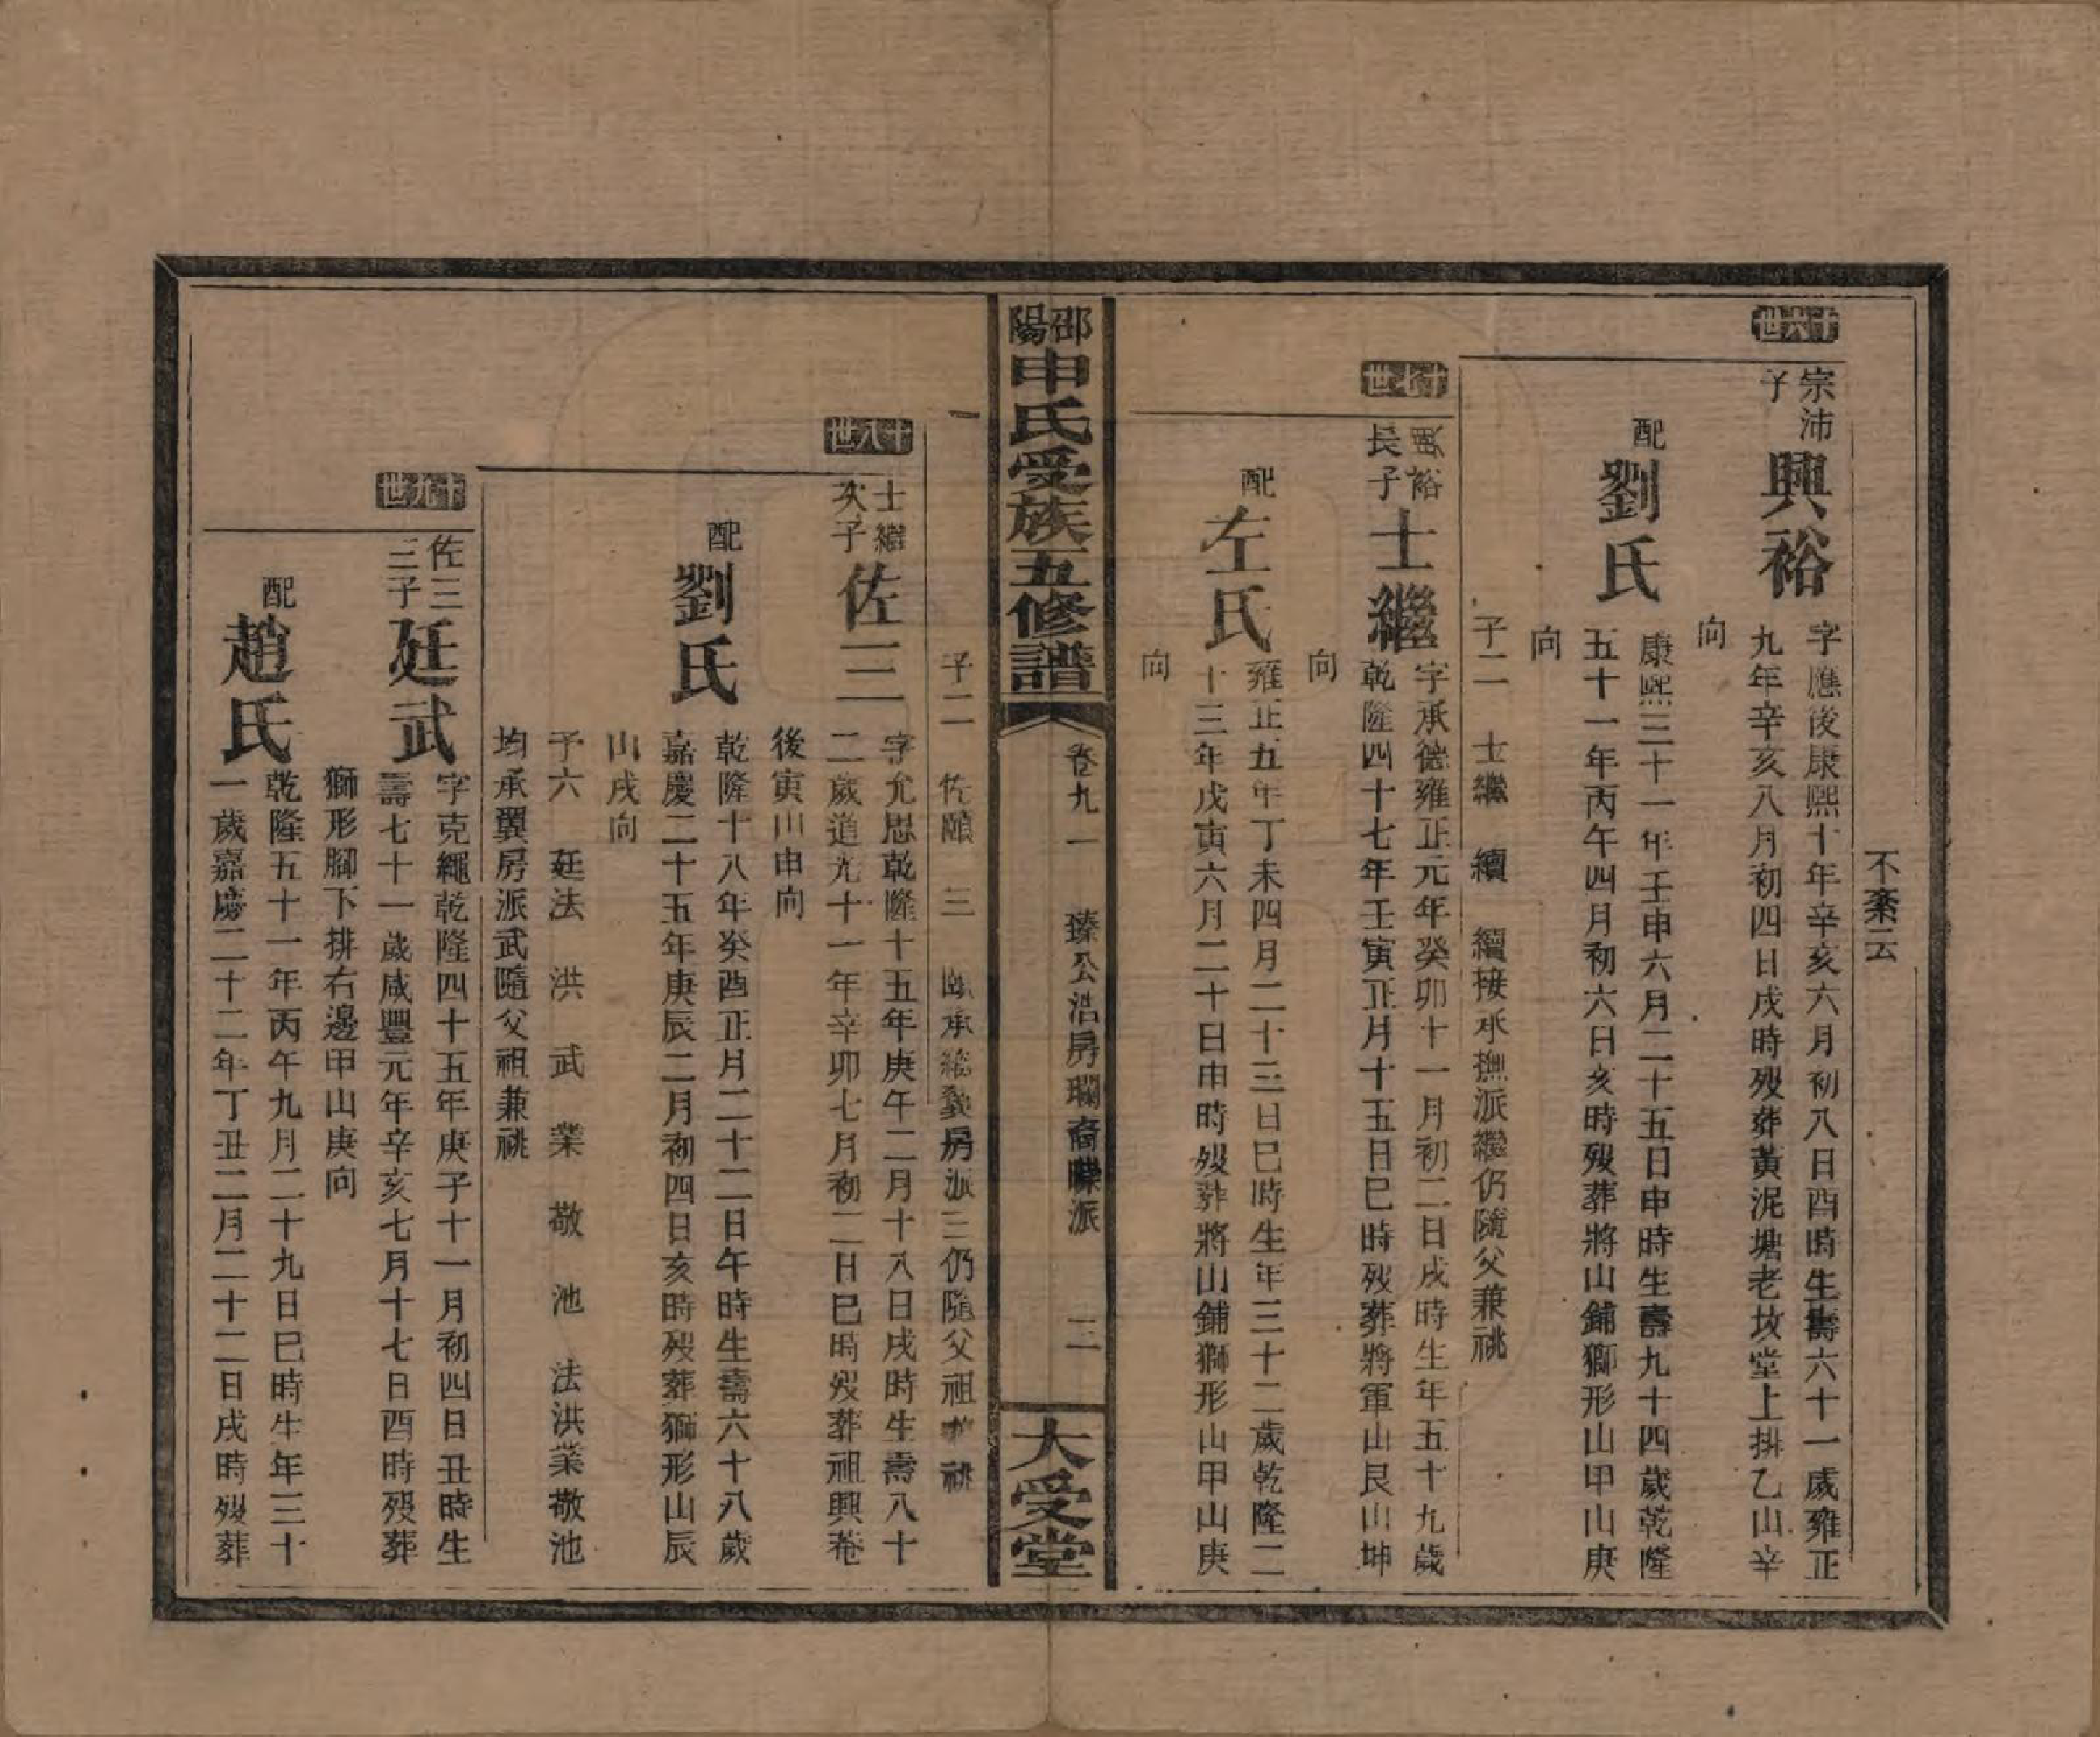 不紊云
十六世
宗沛子
興裕
字應後康熙十年辛亥六月初八日酉時生壽六十一歲雍正
九年辛亥八月初四日戌時歿葬黃泥塘老坟堂上排乙山辛
向
配
劉氏
康熙三十一年壬申六月二十五日申時生壽九十四歲乾隆
五十一年丙午四月初六日亥時歿葬將山鋪獅形山甲山庚
向
子二 士繼 續 續接承撫派繼仍隨父兼祧
十七世
興裕長子
士繼
字承德雍正元年癸卯十一月初二日戌時生年五十九歲
乾隆四十七年壬寅正月十五日巳時歿葬將軍山艮山坤
向
配
左氏
雍正五年丁未四月二十三日巳時生年三十二歲乾隆二
十三年戊寅六月二十日申時歿葬將山鋪獅形山甲山庚
向
邵陽申氏受族五修譜
卷九一 臻公浩房瓓裔曄派 二
大受堂
子二 佐頤 三 承總房派三仍隨父祖兼祧
十八世
士繼次子
佐三
字允思乾隆十五年庚午二月十八日戌時生壽八十
二歲道光十一年辛卯七月初二日巳時歿葬祖興菴
後寅山申向
配
劉氏
乾隆十八年癸酉正月二十二日午時生壽六十八歲
嘉慶二十五年庚辰二月初四日亥時歿葬獅形山辰
山戌向
子六 廷法 洪 武 業 敬 池 法洪業敬池
均承翼房派武隨父祖兼祧
十九世
佐三三子
廷武
字克繩乾隆四十五年庚子十一月初四日丑時生
壽七十一歲咸豐元年辛亥七月十七日酉時歿葬
獅形腳下排右邊甲山庚向
配
趙氏
乾隆五十一年丙午九月二十九日巳時生年三十
一歲嘉慶二十二年丁丑二月二十二日戌時歿葬